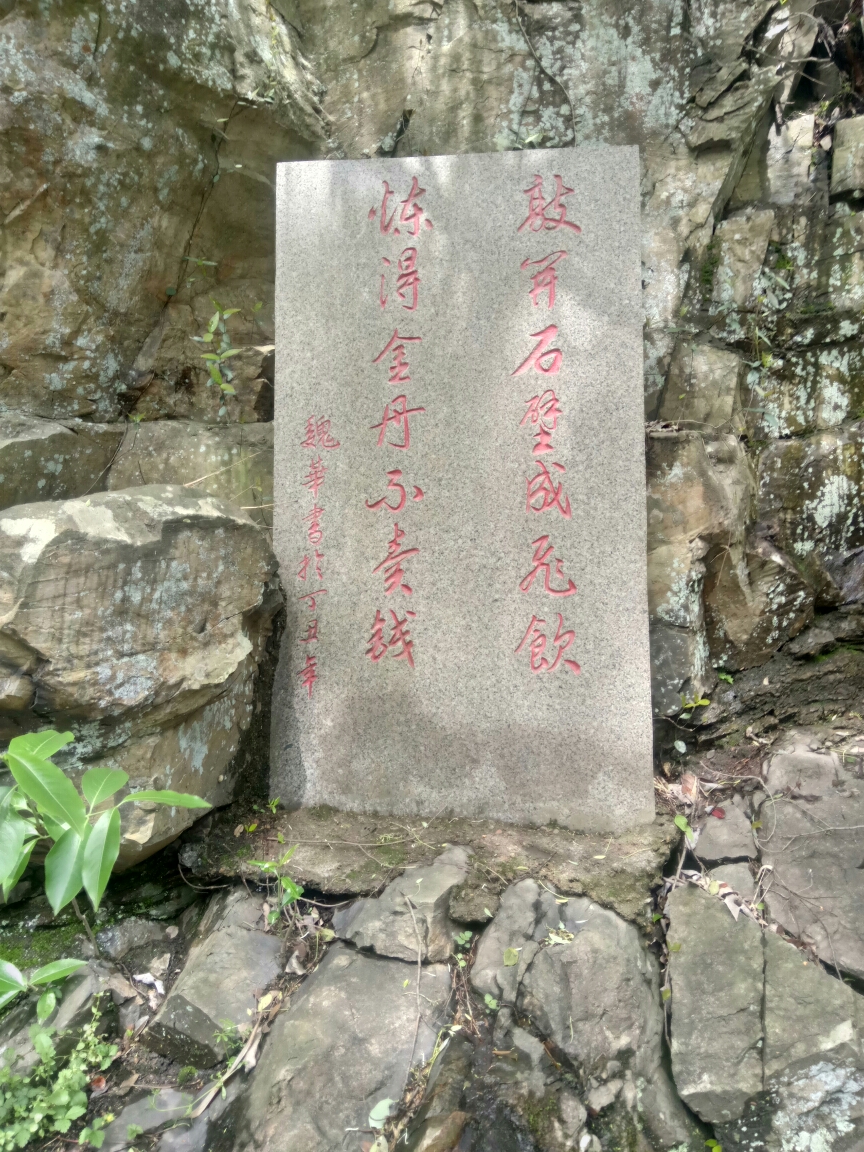 敲开石壁成飛飲
炼得金丹不卖钱
魏華書於丁丑年